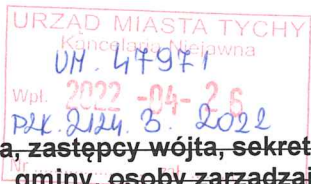 URZĄD MIASTA TYCHY
Kancelaria Niejawna
UM. 47971
Wpł. 2022 -04- 26
PZK. 2124. 3. 2022
a, zastępcy wójta, sekret
Nr
gminy, osoby zarządzaj